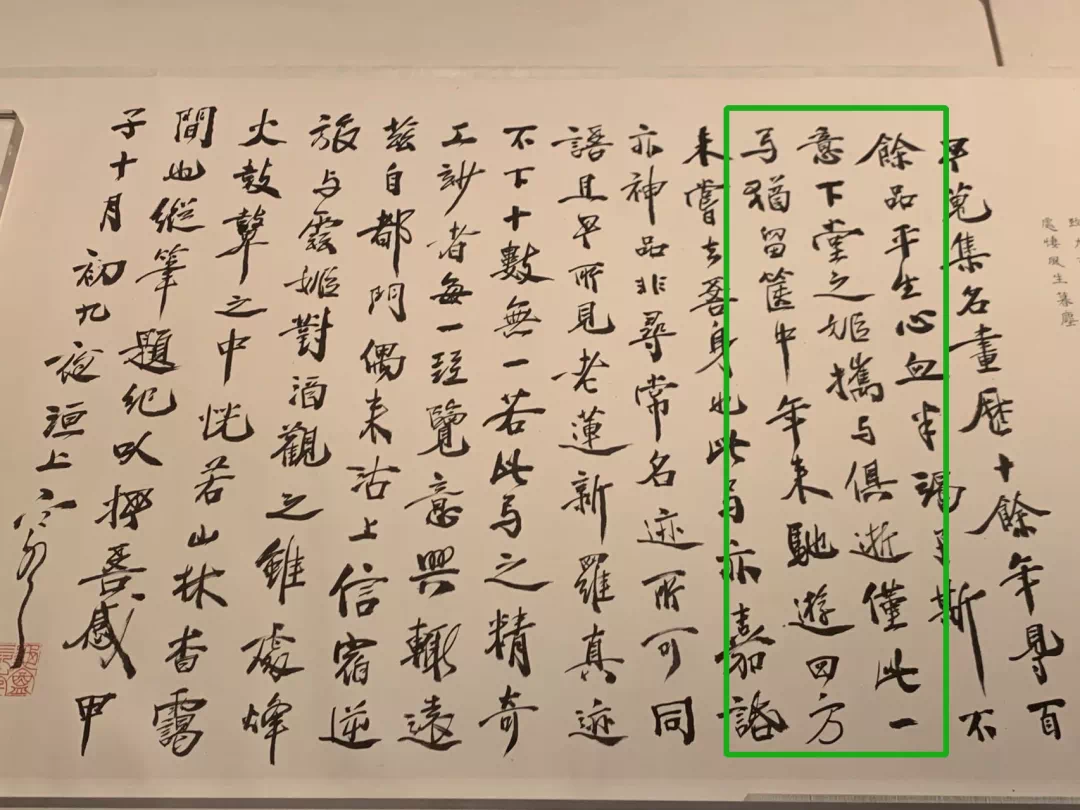 蒐集名畫歷十餘年得百
餘品平生心血半竭于斯不
意下堂之姬攜与俱逝僅此一
马猶留篋中年来馳遊四方
未嘗去吾身也此马亦嘉話
亦神品非尋常名迹所可同
語且所見老蓮新羅真迹
不下十數無一若此马之精奇
工紗者每一經覽意興輒遠
兹自都門偶来沽上信宿逆
旅与霞姬對酒觀之雖處烽
火鼓鼙之中恍若山林杳靄
間也縱筆題紀以抒吾感甲
子十月初九夜洹上寒雲